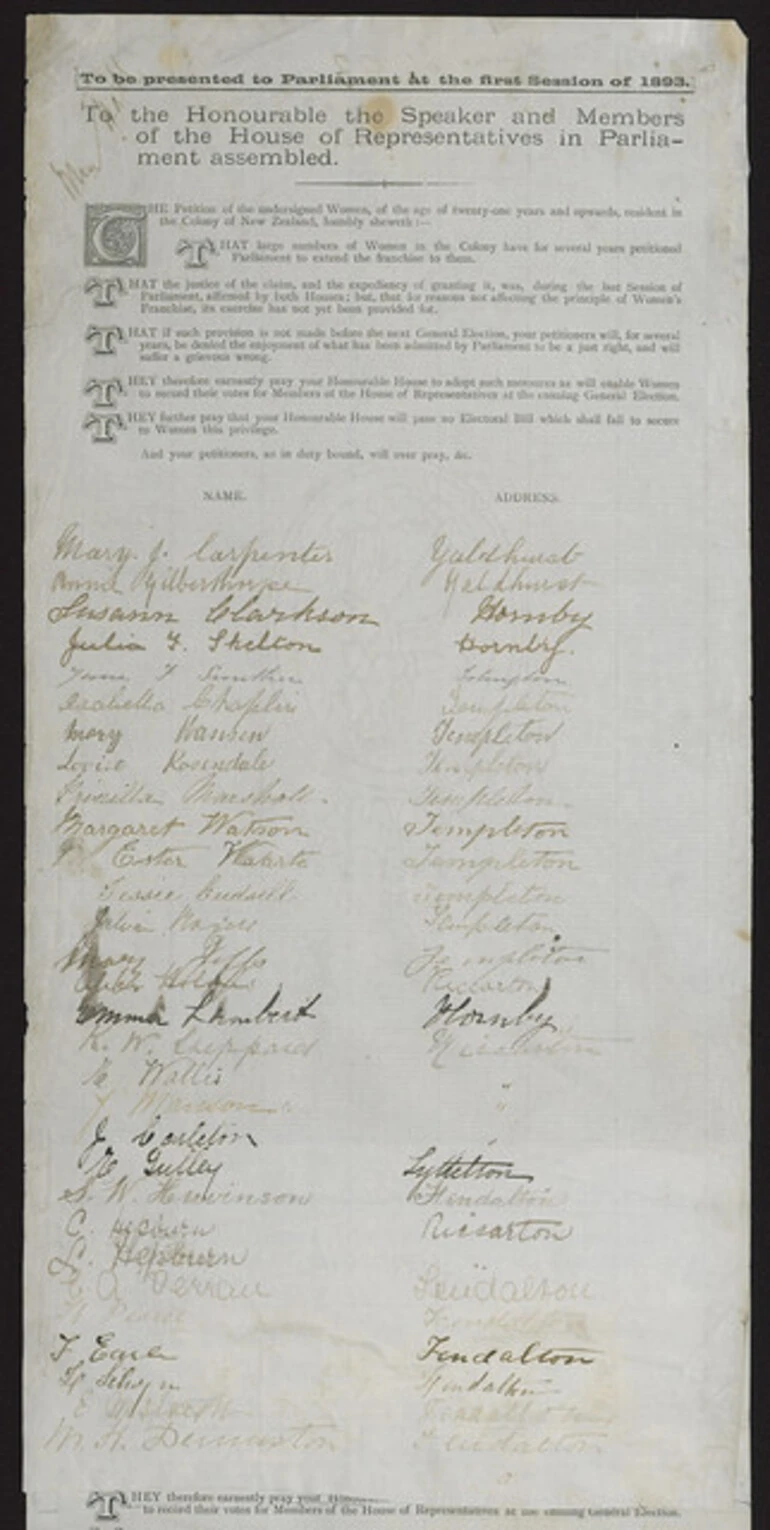 To be presented to Parliament at the first Session of 1893.
To the Honourable the Speaker and Members
of the House of Representatives in Parlia-
ment assembled.
THE Petition of the undersigned Women, of the age of twenty-one years and upwards, resident in
the Colony of New Zealand, humbly sheweth :—
THAT large numbers of Women in the Colony have for several years petitioned
Parliament to extend the franchise to them.
THAT the justice of the claim, and the expediency of granting it, was, during the last Session of
Parliament, affirmed by both Houses; but, that for reasons not affecting the principle of Women's
Franchise, its exercise has not yet been provided for.
THAT if such provision is not made before the next General Election, your petitioners will, for several
years, be denied the enjoyment of what has been admitted by Parliament to be a just right, and will
suffer a grievous wrong.
THEY therefore earnestly pray your Honourable House to adopt such measures as will enable Women
to record their votes for Members of the House of Representatives at the ensuing General Election.
THEY further pray that your Honourable House will pass no Electoral Bill which shall fail to secure
to Women this privilege.
And your petitioners, as in duty bound, will ever pray, &c.
NAME. ADDRESS.
Mary. J. Carpenter Yaldhurst
Anna Gilberthorpe Yaldhurst
Susann Clarkson Hornby
Julia F. Shelton Hornby.
Templeton
Chaplin Templeton
Mary Hansen Templeton
Rosendale Templeton
Priscilla Marshall. Templeton.
Margaret Watson Templeton
Ester Templeton
Jessie Templeton
Templeton
Mary Templeton
Riccarton
Emma Lambert Hornby
K. W. Sheppard Riccarton
E Wallis
Manson "
J Carleton
E Gulley Lyttelton
S. W. Fendalton
C. Hepburn Riccarton
L. Hepburn "
E A Perrau Fendalton
Pearse Fendalton
F Earle Fendalton
H Selwyn Fendalton
Fendalton
M. H. Denniston Fendalton
THEY therefore earnestly pray your
to record their votes for Members of the House of Representatives at the ensuing General Election.